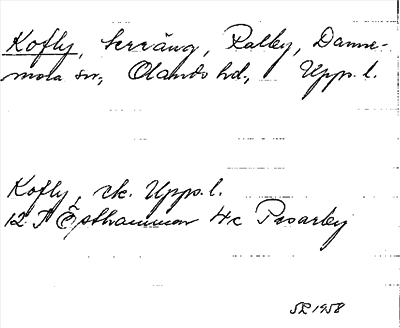 Kofly, terräng, Ralby, Danne-
mora sn, Olands hd, Upps. l.
Kofly, ek. Upps. l.
12 I Östhammar 4c Prsarby
SR 1958